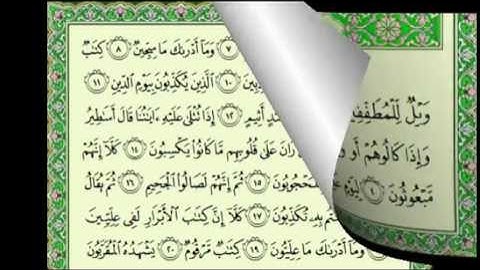 وَيْلٌ لِّلْمُطَفِّفِينَ
وَإِذَا كَالُوهُمْ أَو
مَّبْعُوثُونَ ٤ لِيَوْمٍ
٧ وَمَآ أَدْرَىٰكَ مَا سِجِّينٌ ٨ كِتَٰبٌ
١٠ ٱلَّذِينَ يُكَذِّبُونَ بِيَوْمِ ٱلدِّينِ ١١
أَثِيمٍ ١٢ إِذَا تُتْلَىٰ عَلَيْهِ ءَايَٰتُنَا قَالَ أَسَٰطِيرُ
رَانَ عَلَىٰ قُلُوبِهِم مَّا كَانُوا۟ يَكْسِبُونَ ١٤ كَلَّآ إِنَّهُمْ
لَّمَحْجُوبُونَ ١٥ ثُمَّ إِنَّهُمْ لَصَالُوا۟ ٱلْجَحِيمِ ١٦ ثُمَّ يُقَالُ
بِهِۦ تُكَذِّبُونَ ١٧ كَلَّآ إِنَّ كِتَٰبَ ٱلْأَبْرَارِ لَفِى عِلِّيِّينَ
وَمَآ أَدْرَىٰكَ مَا عِلِّيُّونَ ١٩ كِتَٰبٌ مَّرْقُومٌ ٢٠ يَشْهَدُهُ ٱلْمُقَرَّبُونَ